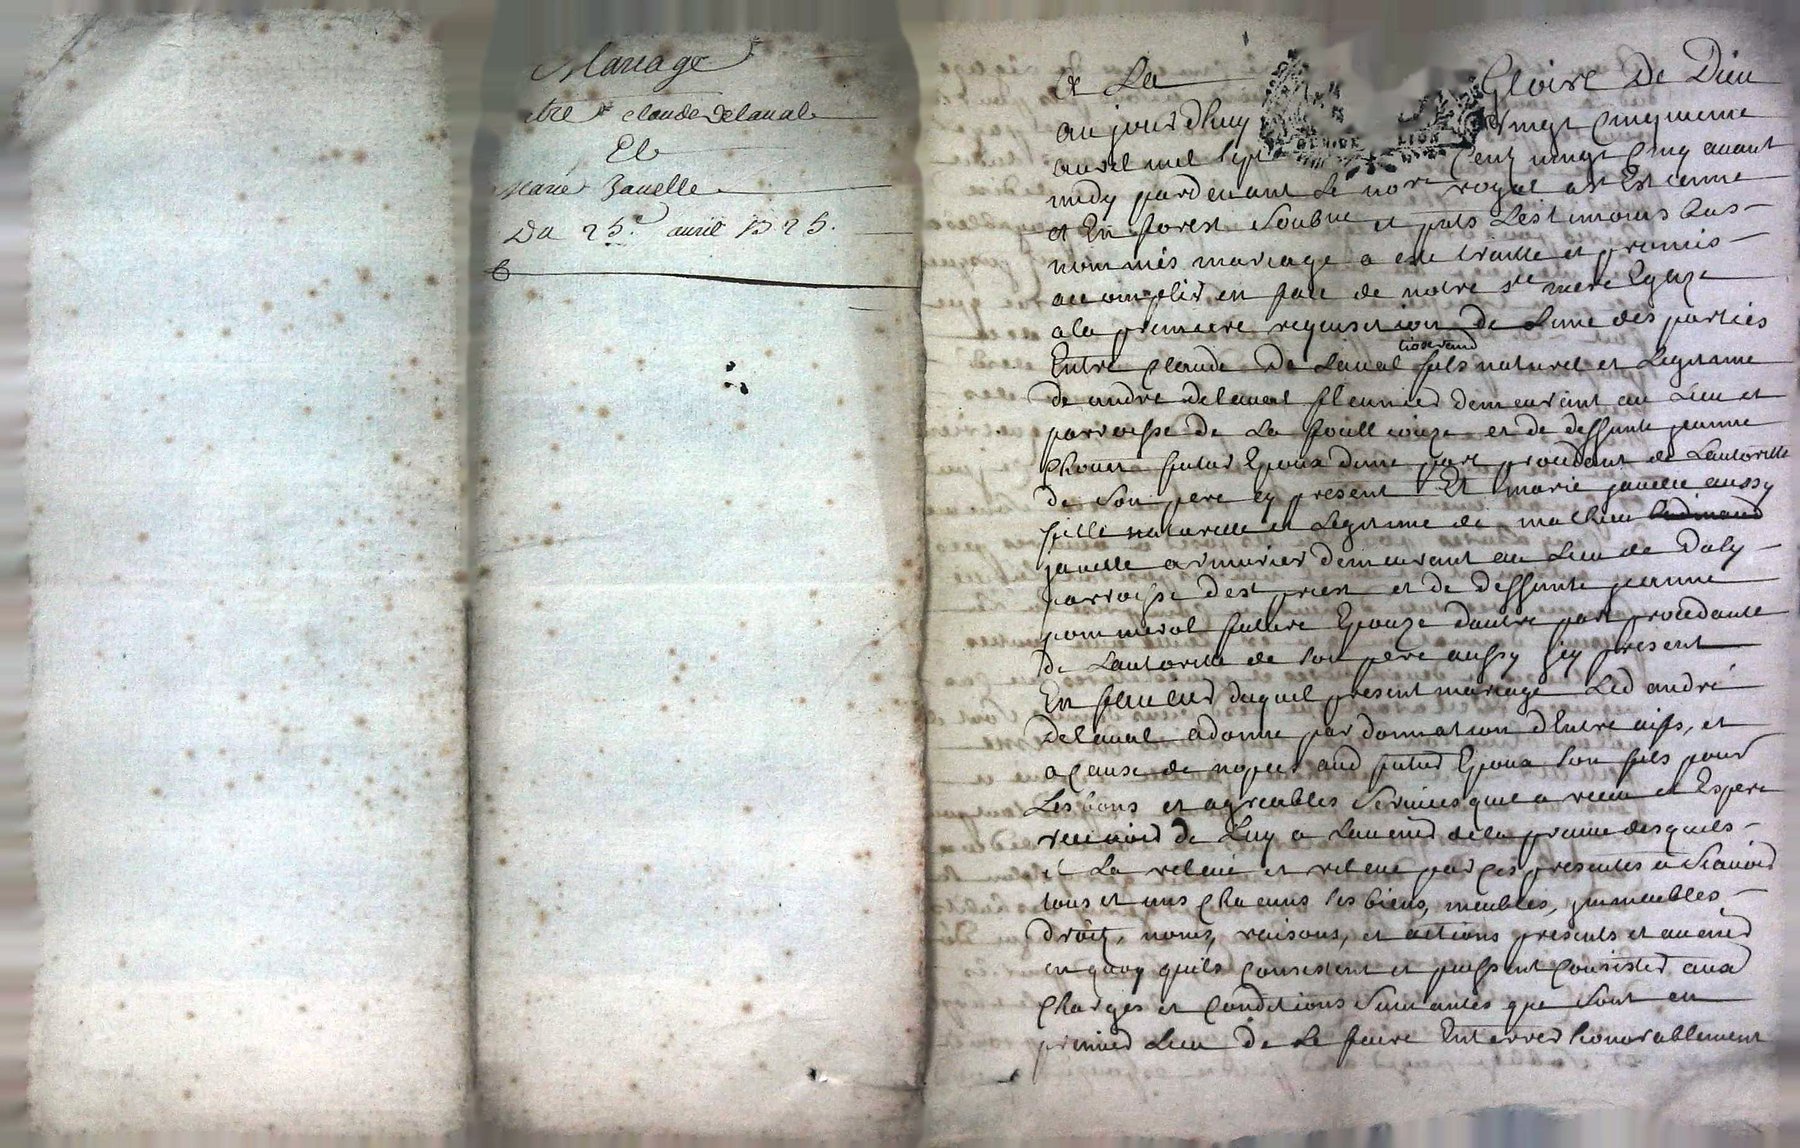 Mariage
ntre Sr claude delaval
Et
Marie Javelle
Du 25e avril 1725.
A La Gloire De Dieu
aujourdhuy vingt cinquieme
avril mil sept Cent vingt Cinq avant
midy pardevant Le nore royal a St Estienne
et En forest Soubne et pnts Les temoins bas
nommés mariage a este traitté et promis
accomplir en face de notre ste mere Eglize
a la premiere requisition de Lune des parties
tisserand
Entre Claude De Laval fils naturel et Legitime
de andre delaval demeurant au Lieu et
parroisse de La foüillouze et de deffunte jeanne
futur Epoux dune part procedant de Lautorité
de Son pere cy present Et marie javelle aussy
fille naturelle et Legitime de mathieu
javelle armurier demeurant au Lieu de
parroisse de st priest et de deffunte jeanne
pommerol future Epouze dautre part procedante
de Lautorité de son pere aussy jcy present
En faveur duquel present mariage Led andré
Delaval a donné par donnation dEntre vifs, et
a Cause de nopces aud futur Epoux son fils pour
Les bons et agreables Services quil a receu et Espere
recevoir de Luy a Lavenir de la preuve desquels
il La relevé et releve par Ces presentes a Scavoir
tous et uns Chacuns ses biens, meubles, jmmeubles
droits, noms, raisons, et actions presents et avenir
en quoy quils Consistent et puissent Consister aux
Charges et Conditions Suivantes que Sont en
premier Lieu de Le faire Enterrer honorablement